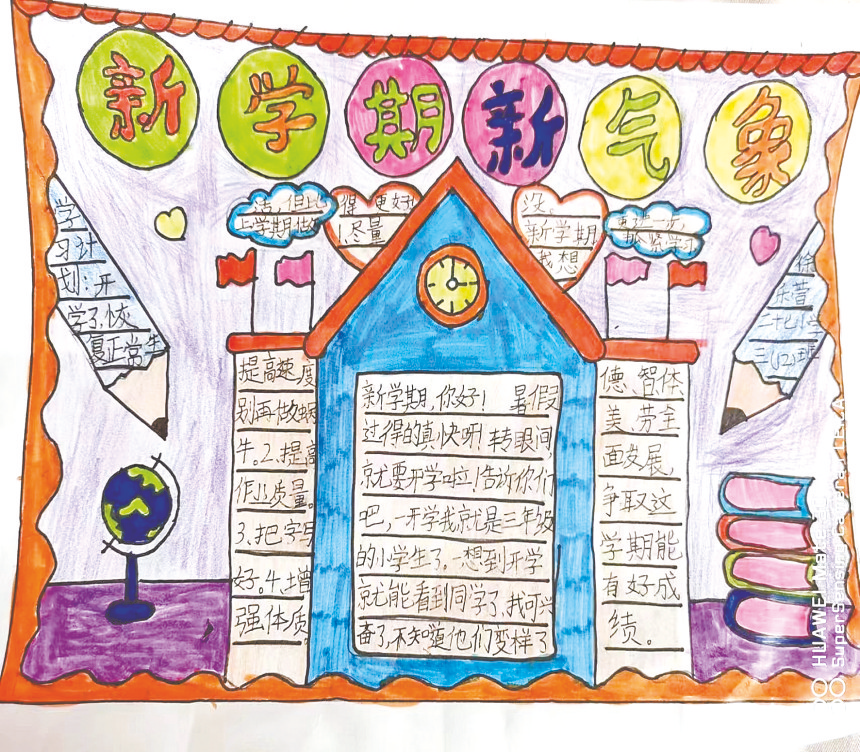 新学期新气象
学
习计
划:开
学了,恢
复正常生
活,但比
上学期做
得更好
1.尽量
提高速度
别再做蜗
牛。2.提高
作业质量。
3.把字写
好。4.增
强体质
新学期,你好! 暑假
过得的真快呀!转眼间
就要开学啦!告诉你们
吧,一开学我就是三年级
的小学生了。一想到开学
就能看到同学了,我可兴
奋了,不知道他们变样了
没,
新学期
我想
德、智体
美、劳全
面发展,
争取这
学期能
有好成
绩。
徐
二七小学
三(12)班
HUAWEI Mate
SuperSensing